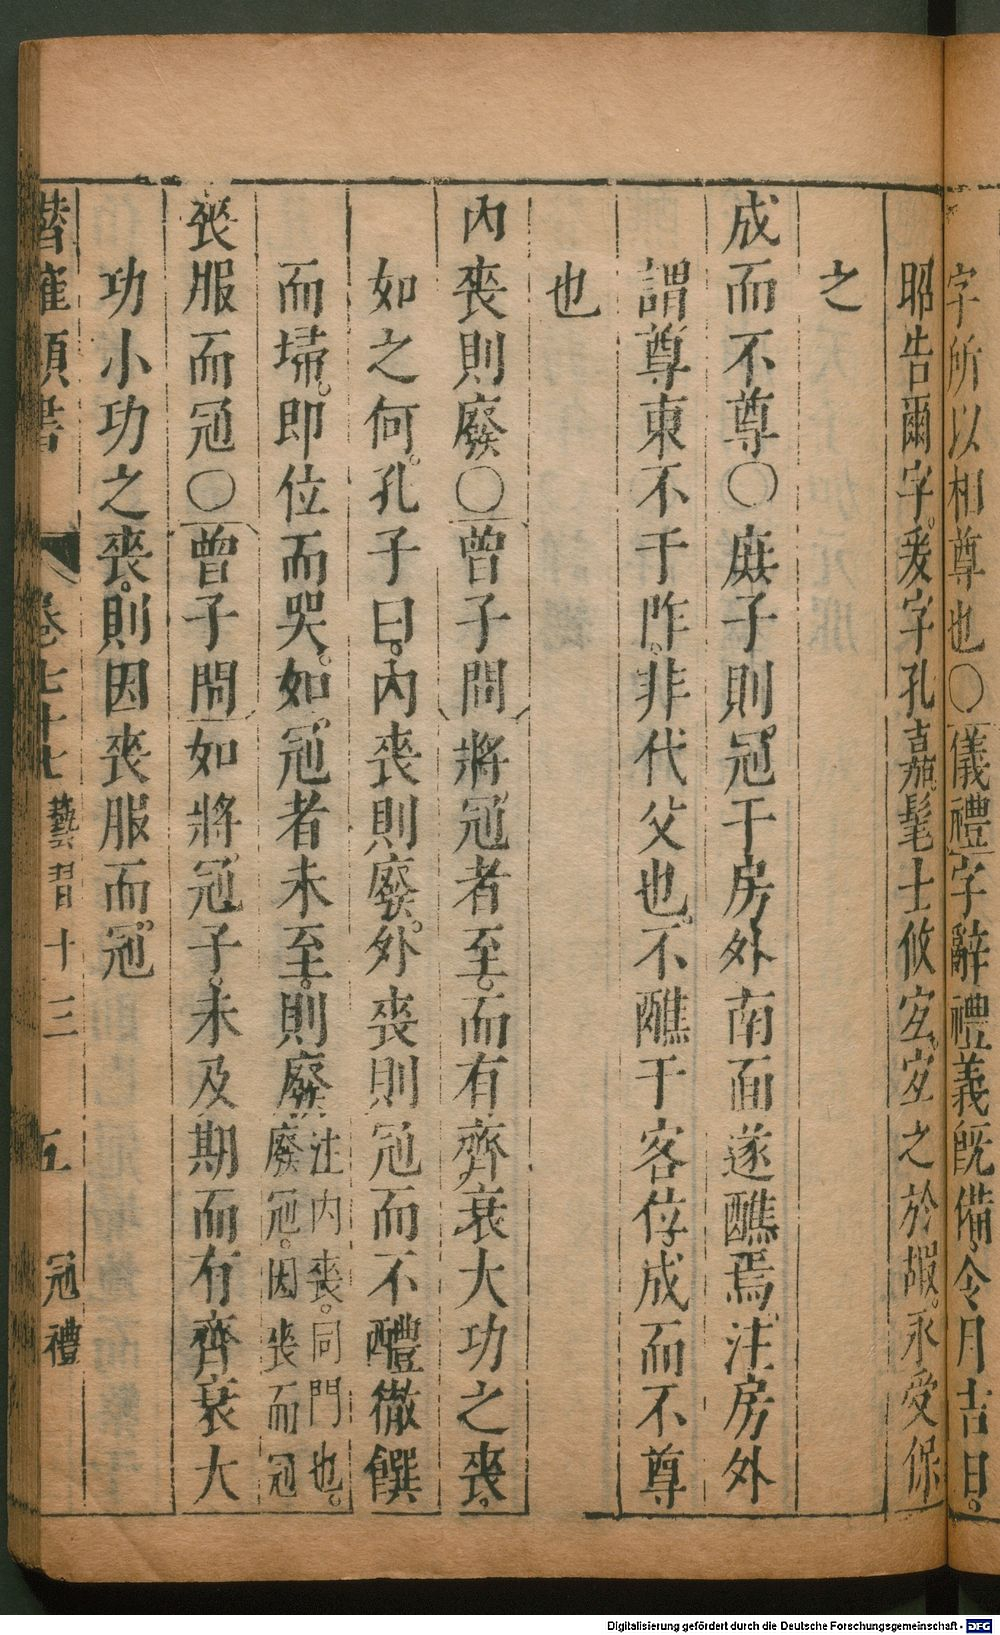 字所以相尊也○儀禮字辭禮義旣備令月吉日。
昭告爾字。爰字孔嘉。髦士攸宐。宐之於嘏。永受保
之
成而不尊○庶子則冠于房外南面遂醮焉。注房外
謂尊東不于阼。非代父也。不醮于客位。成而不尊
也
內喪則廢○曾子問將冠者至。而有齊衰大功之喪。
如之何。孔子曰。內喪則廢。外喪則冠而不醴徹饌
而埽。即位而哭。如冠者未至。則廢注內喪。同門也。
廢冠。因喪而冠
喪服而冠○曾子問如將冠子。未及期而有齊衰大
功小功之喪。則因喪服而冠
潛確類書 卷七十七 藝習十三 五 冠禮
Digitalisierung gefördert durch die Deutsche Forschungsgemeinschaft - DFG